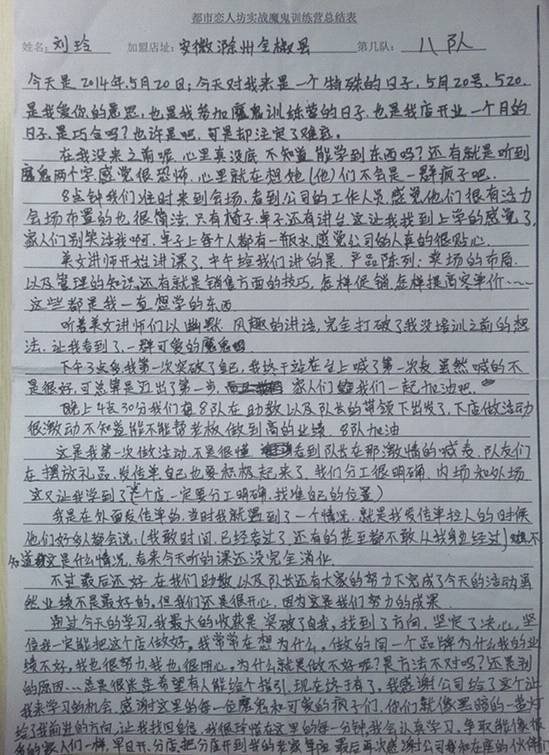 都市恋人坊实战魔鬼训练营总结表
姓名: 刘玲 加盟店址: 安徽滁州全椒县 第几队: 八队
今天是2014年5月20日;今天对我来是一个特殊的日子,5月20号,520.
是我爱你的意思,也是我参加魔鬼训练营的日子,也是我店开业一个月的
日子,是巧合吗?也许是吧,可是却注定了难忘。
在我没来之前呢,心里真没底不知道能学到东西吗?还有就是听到
魔鬼两个字感觉很恐怖,心里就在想她(他)们不会是一群疯子吧.
8点钟我们准时来到会场,看到公司的工作人员,感觉他们很有活力
会场布置的也很简洁,只有椅子,桌子还有讲台,这让我找到上学的感觉了,
家人们别笑话我啊,桌子上每个人都有一瓶水,感觉公司的人真的很贴心.
美女讲师开始讲课了,上午给我们讲的是,产品陈列,卖场的布局.
以及管理的知识,还有就是销售方面的技巧,怎样促销,怎样提高客单价……
这些都是我一直想学的东西
听着美女讲师们以幽默风趣的讲法,完全打破了我没培训之前的想
法,让我看到了,一群可爱的魔鬼
下午3点多我第一次突破了自己,我终于站在台上喊了第一次麦虽然喊的不
是很好,可总算是迈出了第一步, 家人们 我们一起加油吧.
晚上4点30分我们 8队在助教以及队长的带领下出发了,下店做活动
很激动不知道能不能帮老板做到高的业绩 8队加油
这是我第一次做活动,不是很懂 看到队长在那激情的喊麦,队友们
在摆放礼品,发传单自己也要积极起来了,我们分工很明确,内场和外场
这又让我学到了 个店一定要分工明确,找准自己的位置)
我是在外面发传单的,当时我就遇到了一个情况,就是我发传单拉人的时候
他们好多人都会说,(我敢时间,已经来过了,还有的甚至都不敢从我身边经过)
知道 是什么情况,看来今天听的课还没完全消化
不过最后还好,在我们助教,以及队长还有大家的努力下完成了今天的活动虽
然业绩不是最好的,但我们还是很开心,因为这是我们努力的成果.
通过今天的学习,我最大的收获是突破了自我,找到了方向,坚定了决心,坚
信我一定能把这个店做好,我常常在想为什么,做的同一个品牌为什么我的业
绩不好,我也很努力,我也很用心,为什么就是做不好呢?是方法不对吗?还是别
的原因… 希望有人能给个指引,现在终于有了,我感谢公司给了这个让
我来学习的机会,感谢这里的每一位魔鬼和可爱的疯子们,你们就像黑暗的一盏灯
给了我前进的方向,让我找回自信,我很珍惜在这里的每一分钟,我会认真学习,争取能像很
多的家人们一样,早日开分店,